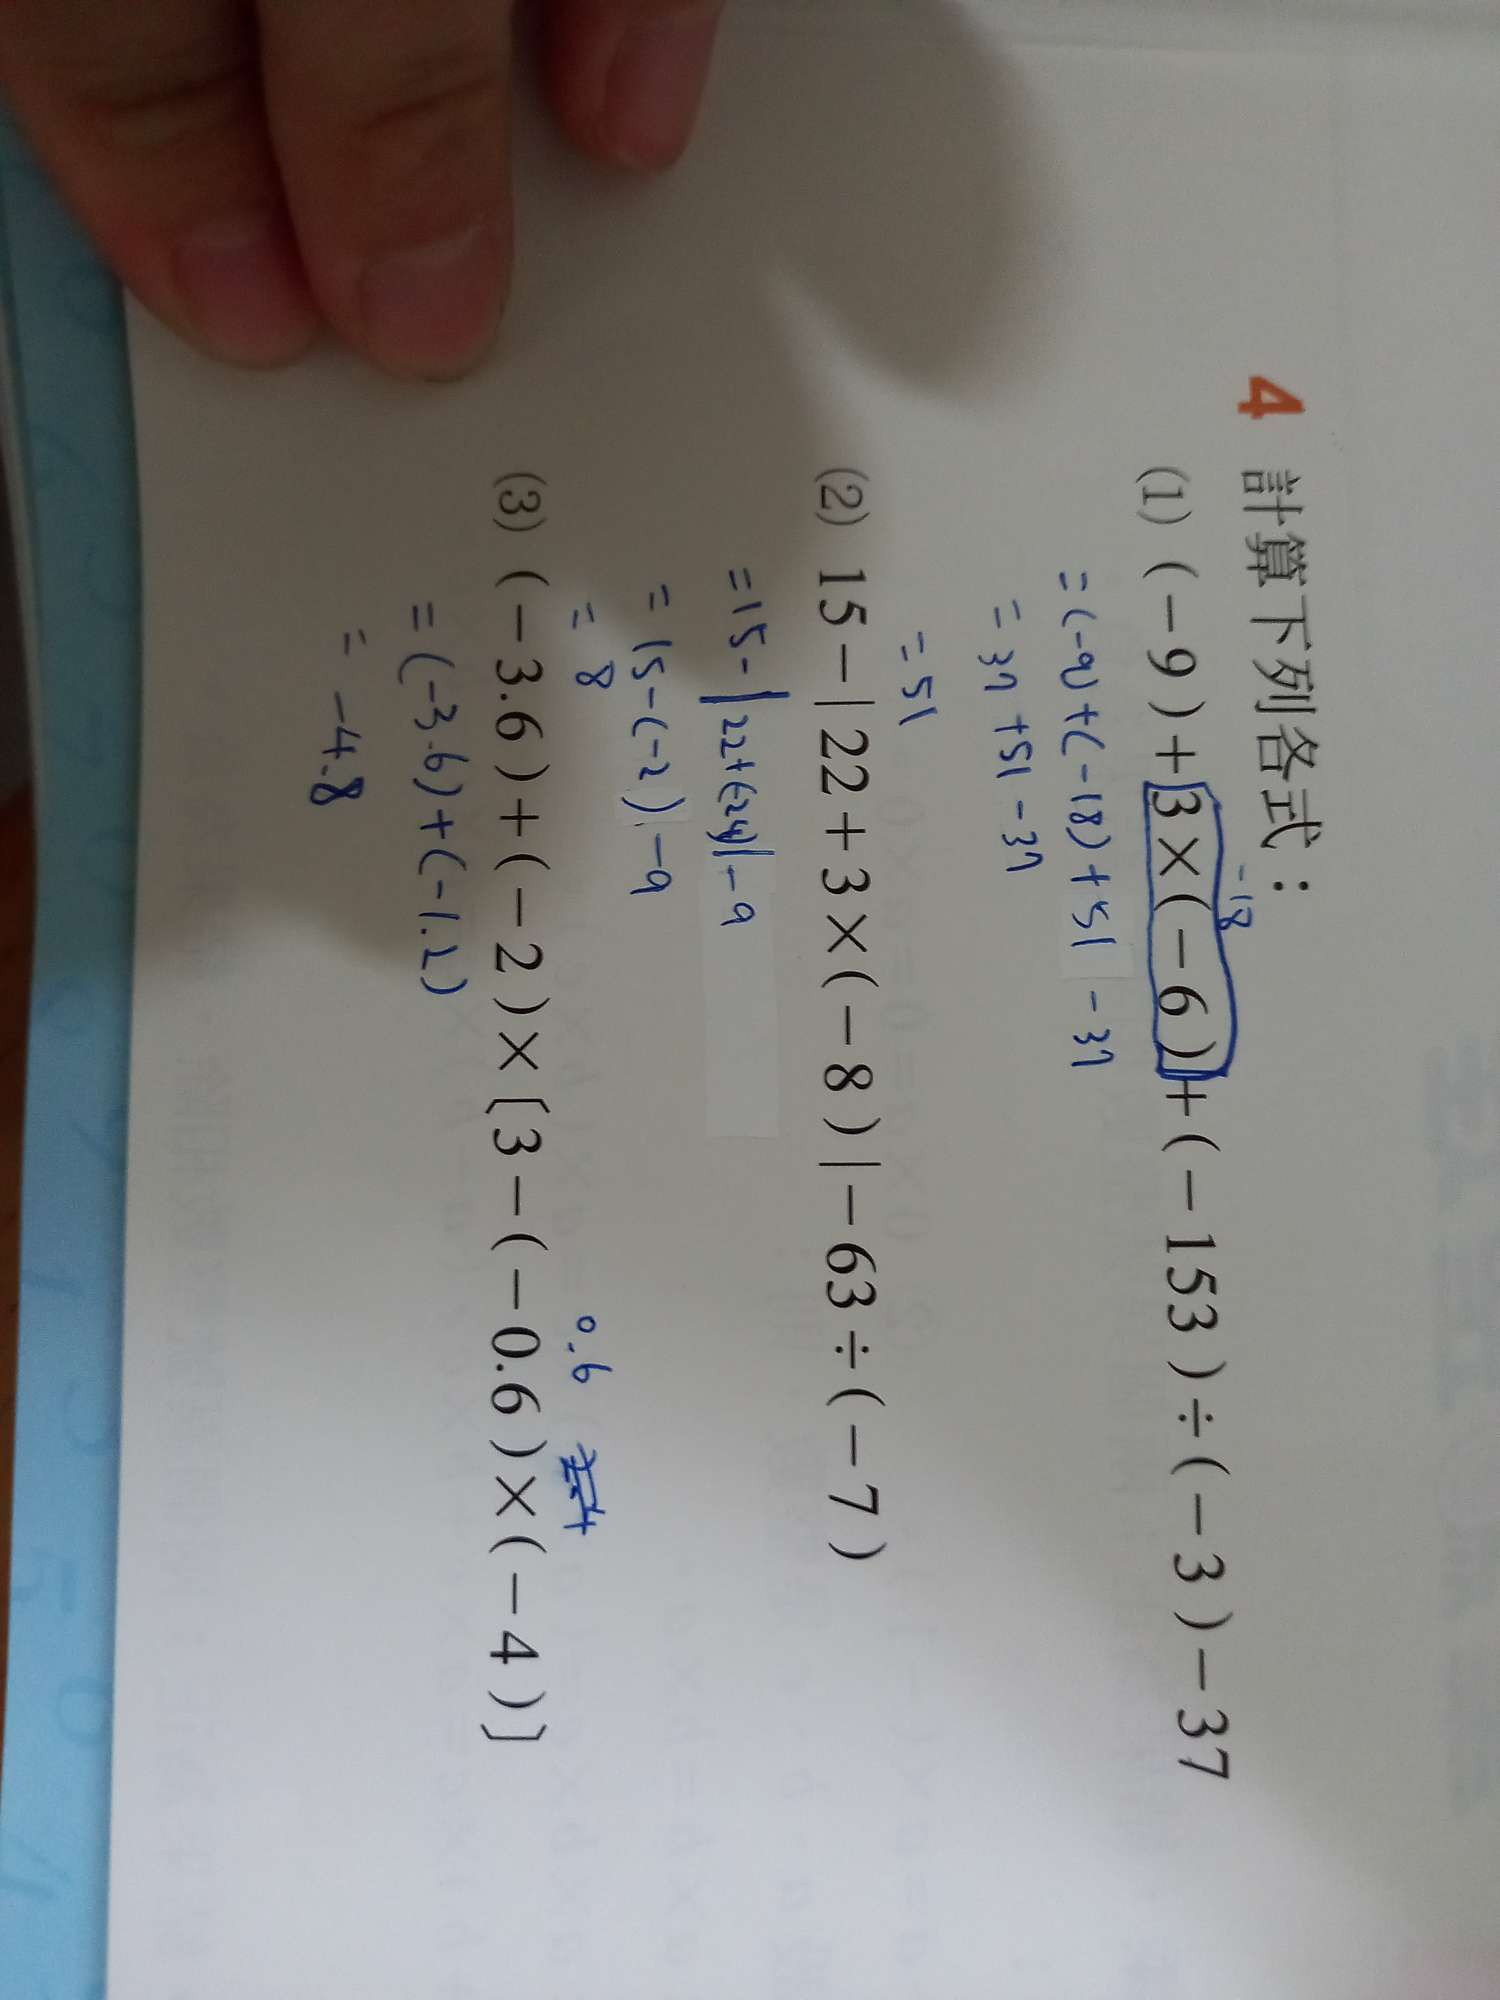 4 計算下列各式：
-18
(1) (－9)＋3×(－6)＋(－153)÷(－3)－37
=(-9)+(-18)+51-37
= 37+51-37
=51
(2) 15－|22＋3×(－8)|－63÷(－7)
=15-|22+(-24)|-9
=15-(-2)-9
= 8
0.6
(3) (－3.6)＋(－2)×〔3－(－0.6)×(－4)〕
=(-3.6)+(-1.2)
= -4.8